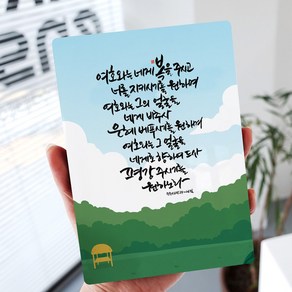 여호와는 네게 복을 주시고
너를 지키시기를 원하며
여호와는 그의 얼굴을
네게 비추사
은혜 베푸시기를 원하며
여호와는 그 얼굴을
네게로 향하여 드사
평강 주시기를
원하노라